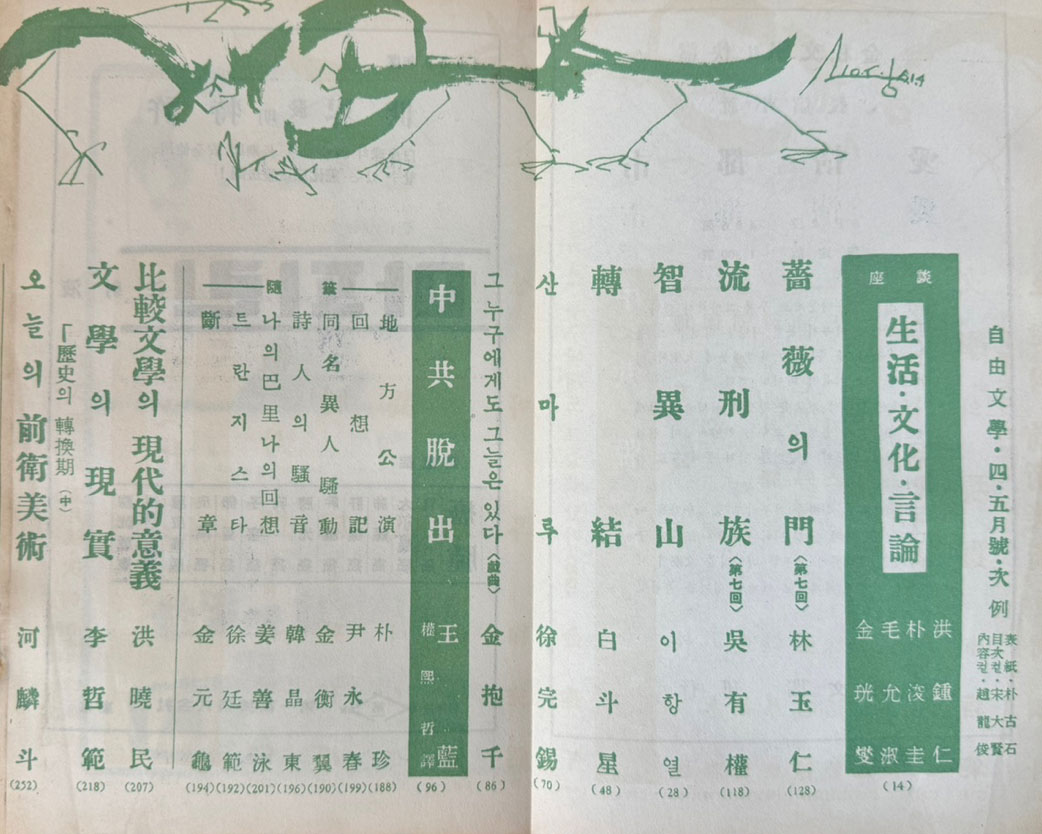 自由文學·四·五月號·次例
表紙·朴古石
目次컽·宋大賢
內容컽·趙龍俊
座談
生活·文化·言論
洪鍾仁
朴浚圭
毛允淑
金珖燮
(14)
薔薇의門〈第七回〉 林玉仁 (128)
流刑族〈第七回〉 吳有權 (118)
智異山 이항열 (28)
轉結 白斗星 (48)
산마루 徐完錫 (70)
그누구에게도그늘은있다〈戱曲〉 金抱千 (86)
中共脫出 王藍 權熙哲譯 (96)
隨筆
地方公演 朴珍 (188)
回想記 尹永春 (199)
同名異人騷動 金衡翼 (190)
詩人의騷音 韓晶東 (196)
나의巴里나의回想 姜善泳 (201)
트란지스타 徐廷範 (192)
斷章 金元龜 (194)
比較文學의 現代的意義 洪曉民 (207)
文學의現實 李哲範 (218)
「歷史의 轉換期(中)
오늘의前衛美術 河麟斗 (252)